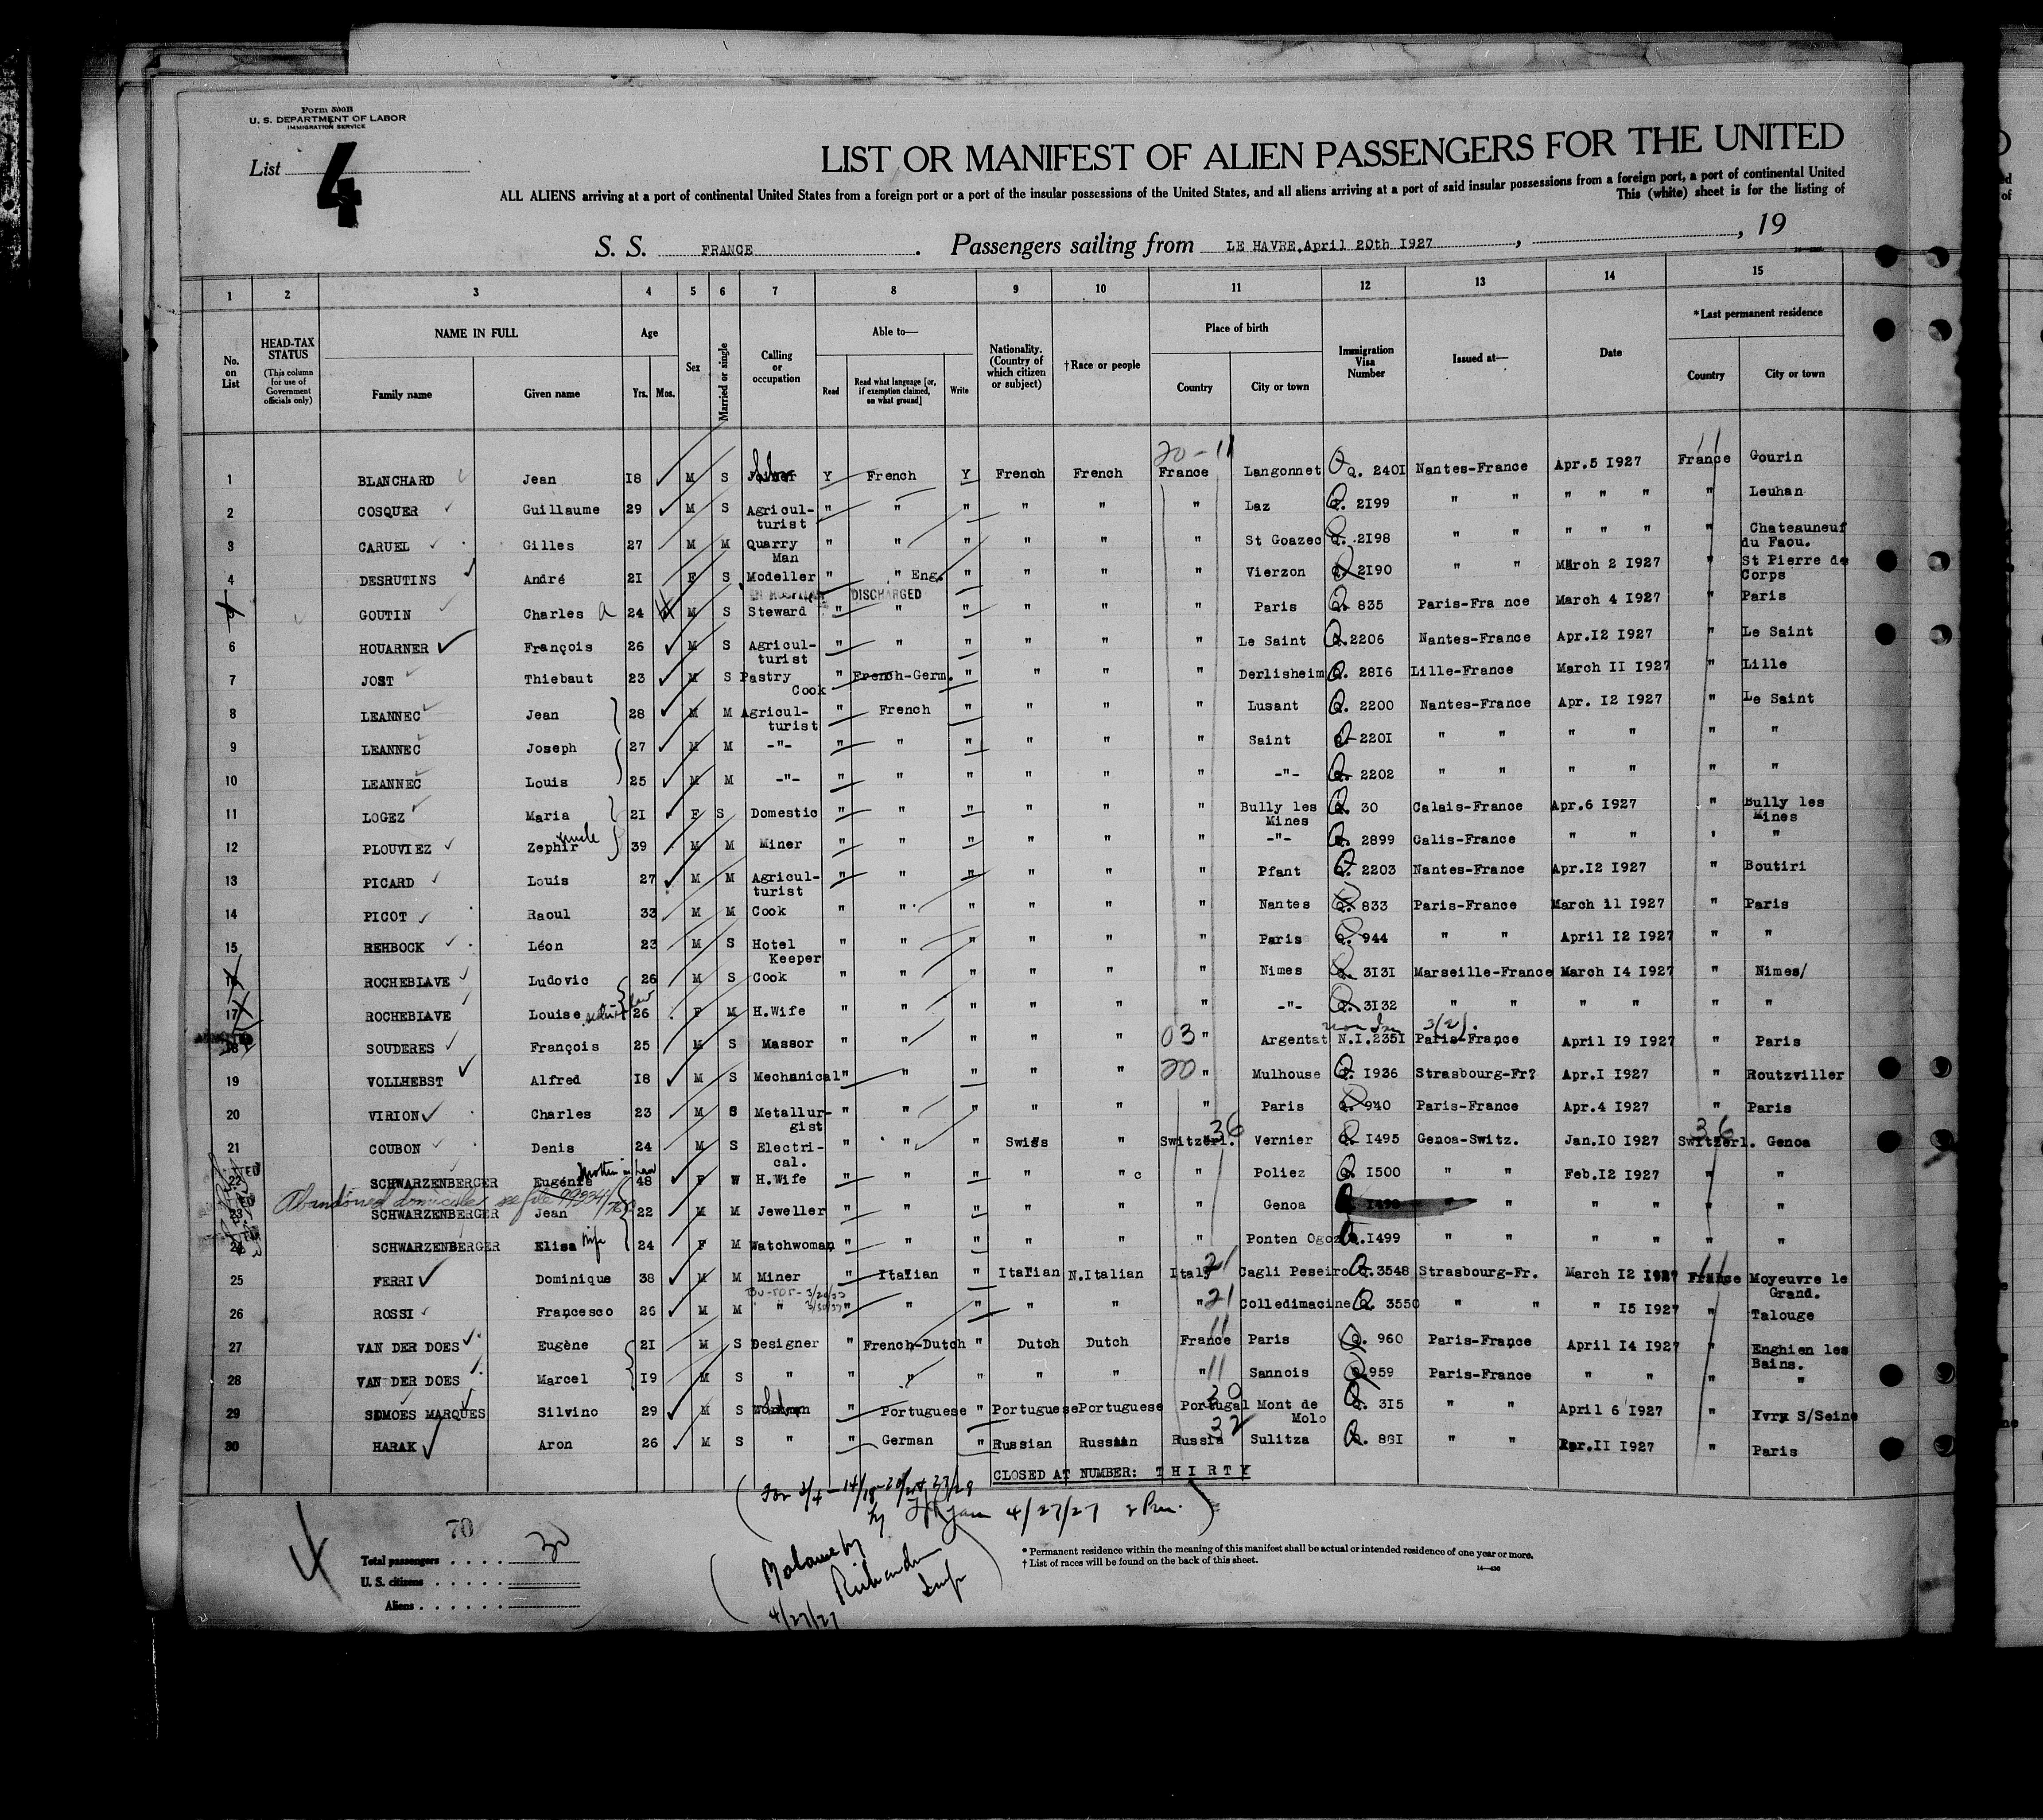 Form 500B
U. S. DEPARTMENT OF LABOR
IMMIGRATION SERVICE
List 4
LIST OR MANIFEST OF ALIEN PASSENGERS FOR THE UNITED
ALL ALIENS arriving at a port of continental United States from a foreign port or a port of the insular possessions of the United States, and all aliens arriving at a port of said insular possessions from a foreign port, a port of continental United
This (white) sheet is for the listing of
S. S. FRANCE. Passengers sailing from LE HAVRE,April 20th I927, , 19
1 2 3 4 5 6 7 8 9 10 11 12 13 14 15
No. on List HEAD-TAX STATUS (This column for use of Government officials only) NAME IN FULL Family name Given name Age Yrs. Mos. Sex Married or single Calling or occupation Able to— Read Read what language [or, if exemption claimed, on what ground] Write Nationality. (Country of which citizen or subject) †Race or people Place of birth Country City or town Immigration Visa Number Issued at— Date *Last permanent residence Country City or town
20-11 11
1 BLANCHARD Jean I8 M S Y French Y French French France Langonnet Q. 240I Nantes-France Apr.5 I927 France Gourin
2 COSQUER Guillaume 29 M S Agricul-turist " " " " " " Laz Q. 2I99 " " " " " " Leuhan
3 CARUEL Gilles 27 M M Quarry Man " " " " " " St Goazec Q. 2I98 " " " " " " Chateauneuf du Faou.
4 DESRUTINS André 2I F S Modeller " " Eng. " " " " Vierzon 2I90 " " March 2 I927 " St Pierre de Corps
IN HOSPITAL DISCHARGED
5 GOUTIN Charles a 24 M S Steward " " " " " " Paris Q. 835 Paris-Fra nce March 4 I927 " Paris
6 HOUARNER François 26 M S Agricul-turist " " " " " " Le Saint Q.2206 Nantes-France Apr.I2 I927 " Le Saint
7 JOST Thiebaut 23 M S Pastry Cook " French-Germ. " " " " Derlisheim Q. 28I6 Lille-France March II I927 " Lille
8 LEANNEC Jean 28 M M Agricul-turist " French " " " " Lusant Q. 2200 Nantes-France Apr. I2 I927 " Le Saint
9 LEANNEC Joseph 27 M M -"- " " " " " " Saint Q 220I " " " " " "
10 LEANNEC Louis 25 M M -"- " " " " " " -"- Q. 2202 " " " " " "
11 LOGEZ Maria 2I F S Domestic " " " " " " Bully les Mines Q. 30 Calais-France Apr.6 I927 " Bully les Mines
12 PLOUVIEZ Zephir uncle 39 M M Miner " " " " " " -"- Q. 2899 Calis-France " " " "
13 PICARD Louis 27 M M Agricul-turist " " " " " " Pfant Q. 2203 Nantes-France Apr.I2 I927 " Boutiri
14 PICOT Raoul 33 M M Cook " " " " " " Nantes Q. 833 Paris-France March 11 I927 " Paris
15 REHBOCK Léon 23 M S Hotel Keeper " " " " " " Paris Q. 944 " " April I2 I927 " "
16 ROCHEBIAVE Ludovic 26 M S Cook " " " " " " Nimes Q. 3I3I Marseille-France March I4 I927 " Nimes/
17 ROCHEBIAVE Louise law 26 F M H.Wife " " " " " " -"- Q. 3I32 " " " " " "
18 SOUDERES François 25 M S Massor " " " " " 03 " Argentat N.I.235I 3(2). Paris-France April I9 I927 " Paris
19 VOLLHEBST Alfred I8 M S Mechanical " " " " " 20 " Mulhouse Q. I936 Strasbourg-Fr? Apr.I I927 " Routzviller
20 VIRION Charles 23 M S Metallur-gist " " " " " " Paris Q. 940 Paris-France Apr.4 I927 " Paris
21 COUBON Denis 24 M S Electri-cal. " " " Swiss " Switzerl. 36 Vernier Q. I495 Genoa-Switz. Jan.IO I927 Switzerl. 36 Genoa
22 SCHWARZENBERGER Eugénie Mother in law 48 F W H.Wife " " " " " c " Poliez Q. I500 " " Feb.I2 I927 " "
Abandoned domicile see file 99334/
23 SCHWARZENBERGER Jean 22 M M Jeweller " " " " " " Genoa I498 " " " " " "
24 SCHWARZENBERGER Elisa wife 24 F M Watchwoman " " " " " " Ponten Ogoz Q.I499 " " " " " "
25 FERRI Dominique 38 M M Miner " Italian " Italian N.Italian Italy 21 Cagli Peseiro Q.3548 Strasbourg-Fr. March I2 I927 France 11 Moyeuvre le Grand.
26 ROSSI Francesco 26 M M " " " " " " " 21 Colledimacine Q. 3550 " " " I5 I927 " Talouge
27 VAN DER DOES Eugène 2I M S Designer " French-Dutch " Dutch Dutch France 11 Paris Q. 960 Paris-France April I4 I927 " Enghien les Bains.
28 VAN DER DOES Marcel I9 M S " " " " " " " 11 Sannois Q.959 Paris-France " " " "
29 SIMOES MARQUES Silvino 29 M S " Portuguese " Portuguese Portuguese Portugal 30 Mont de Molo Q. 3I5 " " April 6 I927 " Yvry S/Seine
30 HARAK Aron 26 M S " " German " Russian Russian Russia 32 Sulitza Q. 88I " " Apr.II I927 " Paris
CLOSED AT NUMBER: T H I R T Y
4/27/27
70
4
Total passengers . . . . . 30
U. S. citizens . . . . . .
Aliens . . . . . .
4/27/27
* Permanent residence within the meaning of this manifest shall be actual or intended residence of one year or more.
† List of races will be found on the back of this sheet.
14—430